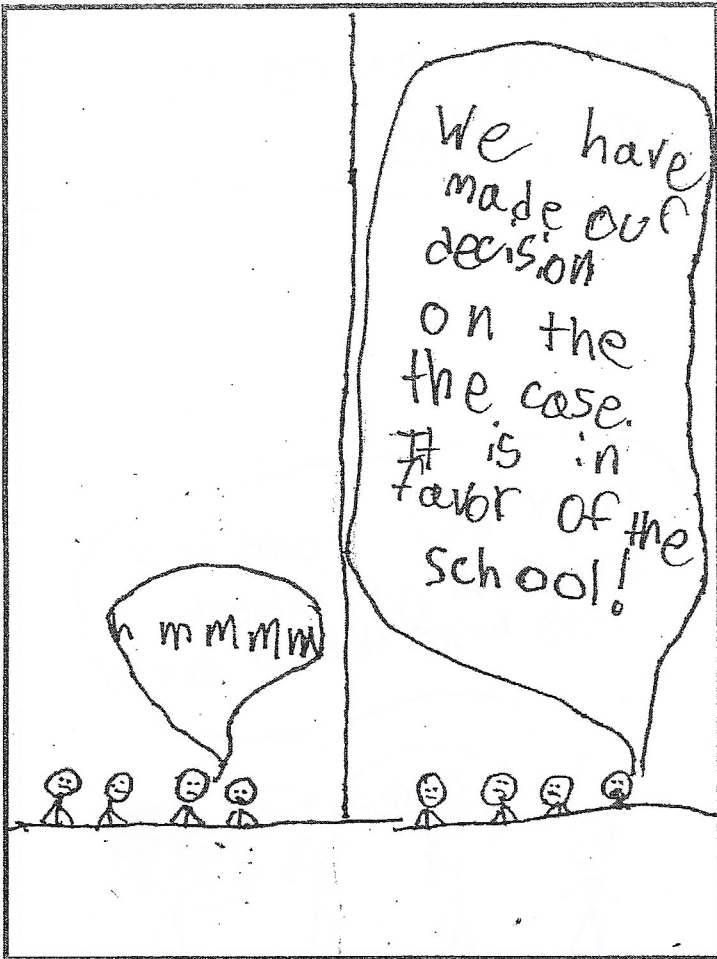 hmmmm
We have
made our
decision
on the
the case.
It is in
favor of the
school!